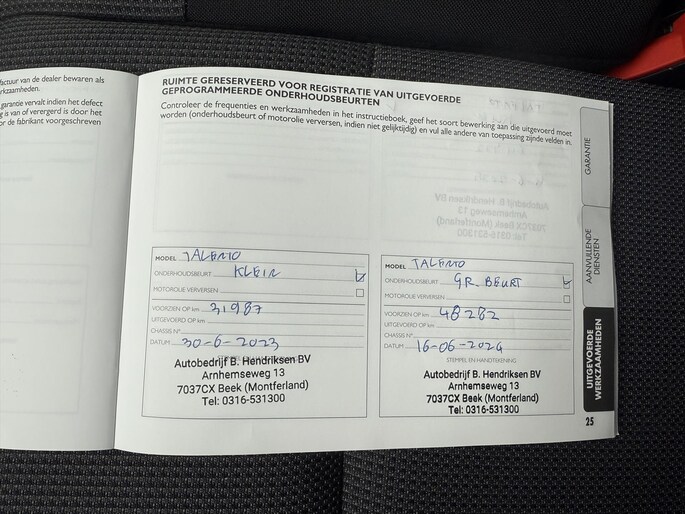 factuur van de dealer bewaren als
rkzaamheden.
garantie vervalt indien het defect
g is van of verergerd is door het
or de fabrikant voorgeschreven
RUIMTE GERESERVEERD VOOR REGISTRATIE VAN UITGEVOERDE
GEPROGRAMMEERDE ONDERHOUDSBEURTEN
Controleer de frequenties en werkzaamheden in het instructieboek, geef het soort bewerking aan die uitgevoerd moet
worden (onderhoudsbeurt of motorolie verversen, indien niet gelijktijdig) en vul alle andere van toepassing zijnde velden in.
MODEL TALENTO
ONDERHOUDSBEURT KLEIN
MOTOROLIE VERVERSEN
VOORZIEN OP km 31987
UITGEVOERD OP km
CHASSIS N°
DATUM 30-6-2023
Autobedrijf B. Hendriksen BV
Arnhemseweg 13
7037CX Beek (Montferland)
Tel: 0316-531300
MODEL TALENTO
ONDERHOUDSBEURT GR. BEURT
MOTOROLIE VERVERSEN
VOORZIEN OP km 48282
UITGEVOERD OP km
CHASSIS N°
DATUM 16-06-2024
STEMPEL EN HANDTEKENING
Autobedrijf B. Hendriksen BV
Arnhemseweg 13
7037CX Beek (Montferland)
Tel: 0316-531300
GARANTIE
AANVULLENDE
DIENSTEN
UITGEVOERDE
WERKZAAMHEDEN
25